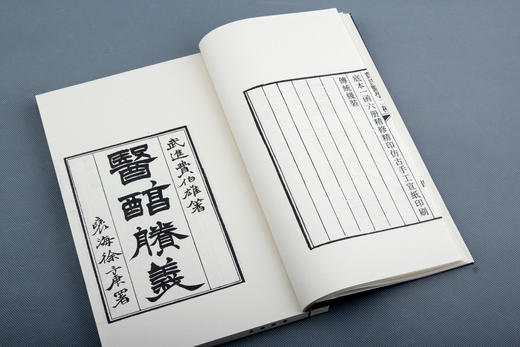 底本一函六册精修精印仿古手工宣紙印刷
傳統綫裝
武進費伯雄箸
醫醕賸義
海徐子庚署